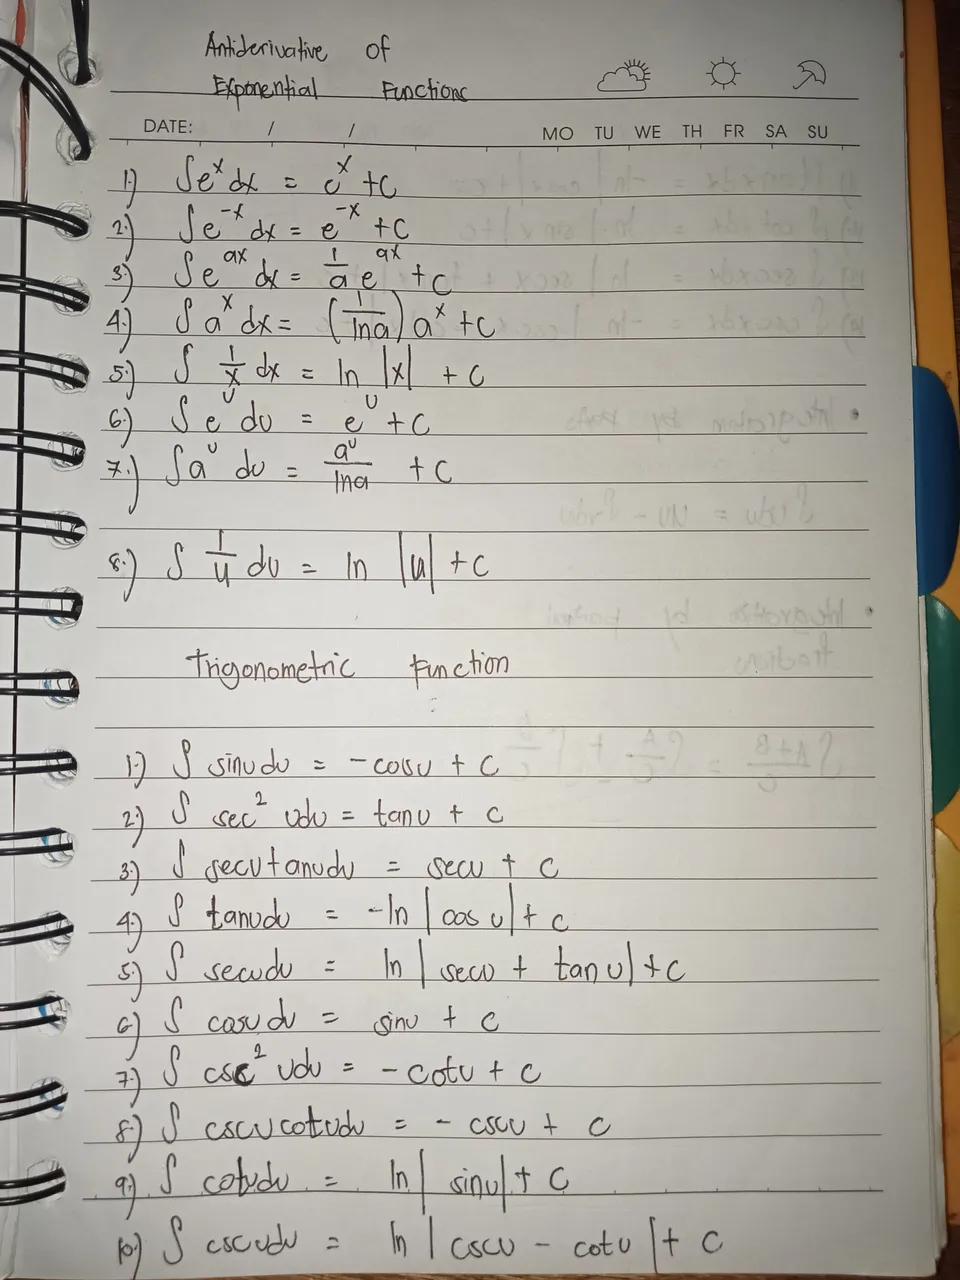 Antiderivative of
Exponential Functions
DATE: / / MO TU WE TH FR SA SU
1.) ∫e^x dx = e^x + C
2.) ∫e^-x dx = e^-x + C
3.) ∫e^ax dx = 1/a e^ax + C
4.) ∫a^x dx = (1/lna) a^x + C
5.) ∫ 1/x dx = ln |x| + C
6.) ∫e^u du = e^u + C
7.) ∫a^u du = a^u/lna + C
8.) ∫ 1/u du = ln |u| + C
Trigonometric Function
1.) ∫ sinu du = -cosu + C
2.) ∫ sec^2 udu = tanu + C
3.) ∫ secutanudu = secu + C
4.) ∫ tanudu = -ln |cos u| + C
5.) ∫ secudu = ln |secu + tanu| + C
6.) ∫ cosu du = sinu + C
7.) ∫ csc^2 udu = -cotu + C
8.) ∫ cscucotudu = - cscu + C
9.) ∫ cotudu = ln |sinu| + C
10.) ∫ cscudu = ln |cscu - cotu| + C